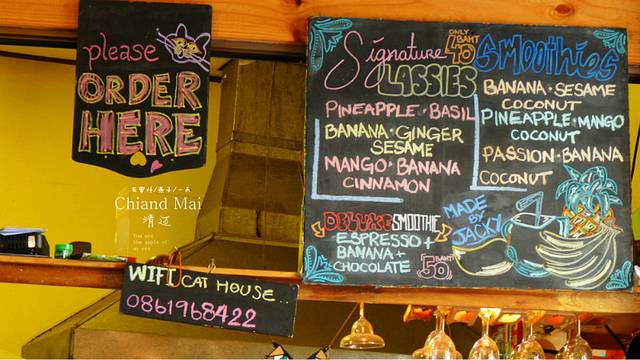 please
ORDER
HERE
Signature
LASSIES
ONLY
40
BAHT
SMOOTHIES
PINEAPPLE · BASIL
BANANA · GINGER
SESAME
MANGO · BANANA
CINNAMON
BANANA · SESAME
COCONUT
PINEAPPLE · MANGO
COCONUT
PASSION · BANANA
COCONUT
DELUXE SMOOTHIE
ESPRESSO +
BANANA +
CHOCOLATE
50 BAHT
MADE
BY
JACKY
Chiand Mai
清迈
You are
the apple of
my eye
WIFI CAT HOUSE..
0861968422